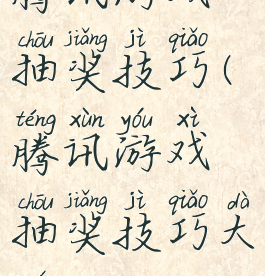 腾讯游戏
chōu jiǎng jì qiǎo
抽奖技巧(
téng xùn yóu xì
腾讯游戏
chōu jiǎng jì qiǎo dà
抽奖技巧大